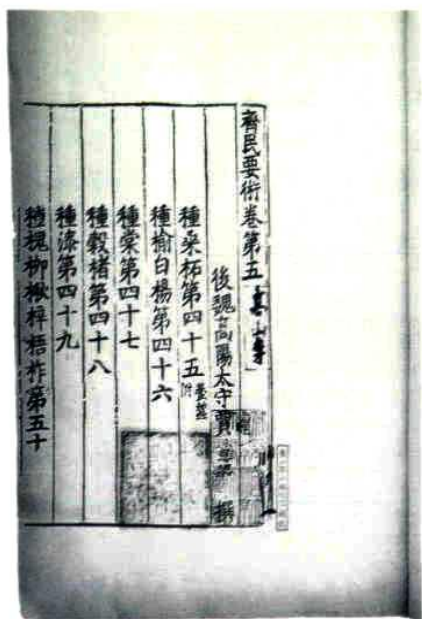 齊民要術卷第五
後魏高陽太守賈思勰 撰
種桑柘第四十五 養蠶附
種榆白楊第四十六
種棠第四十七
種榖楮第四十八
種漆第四十九
種槐柳楸梓梧柞第五十